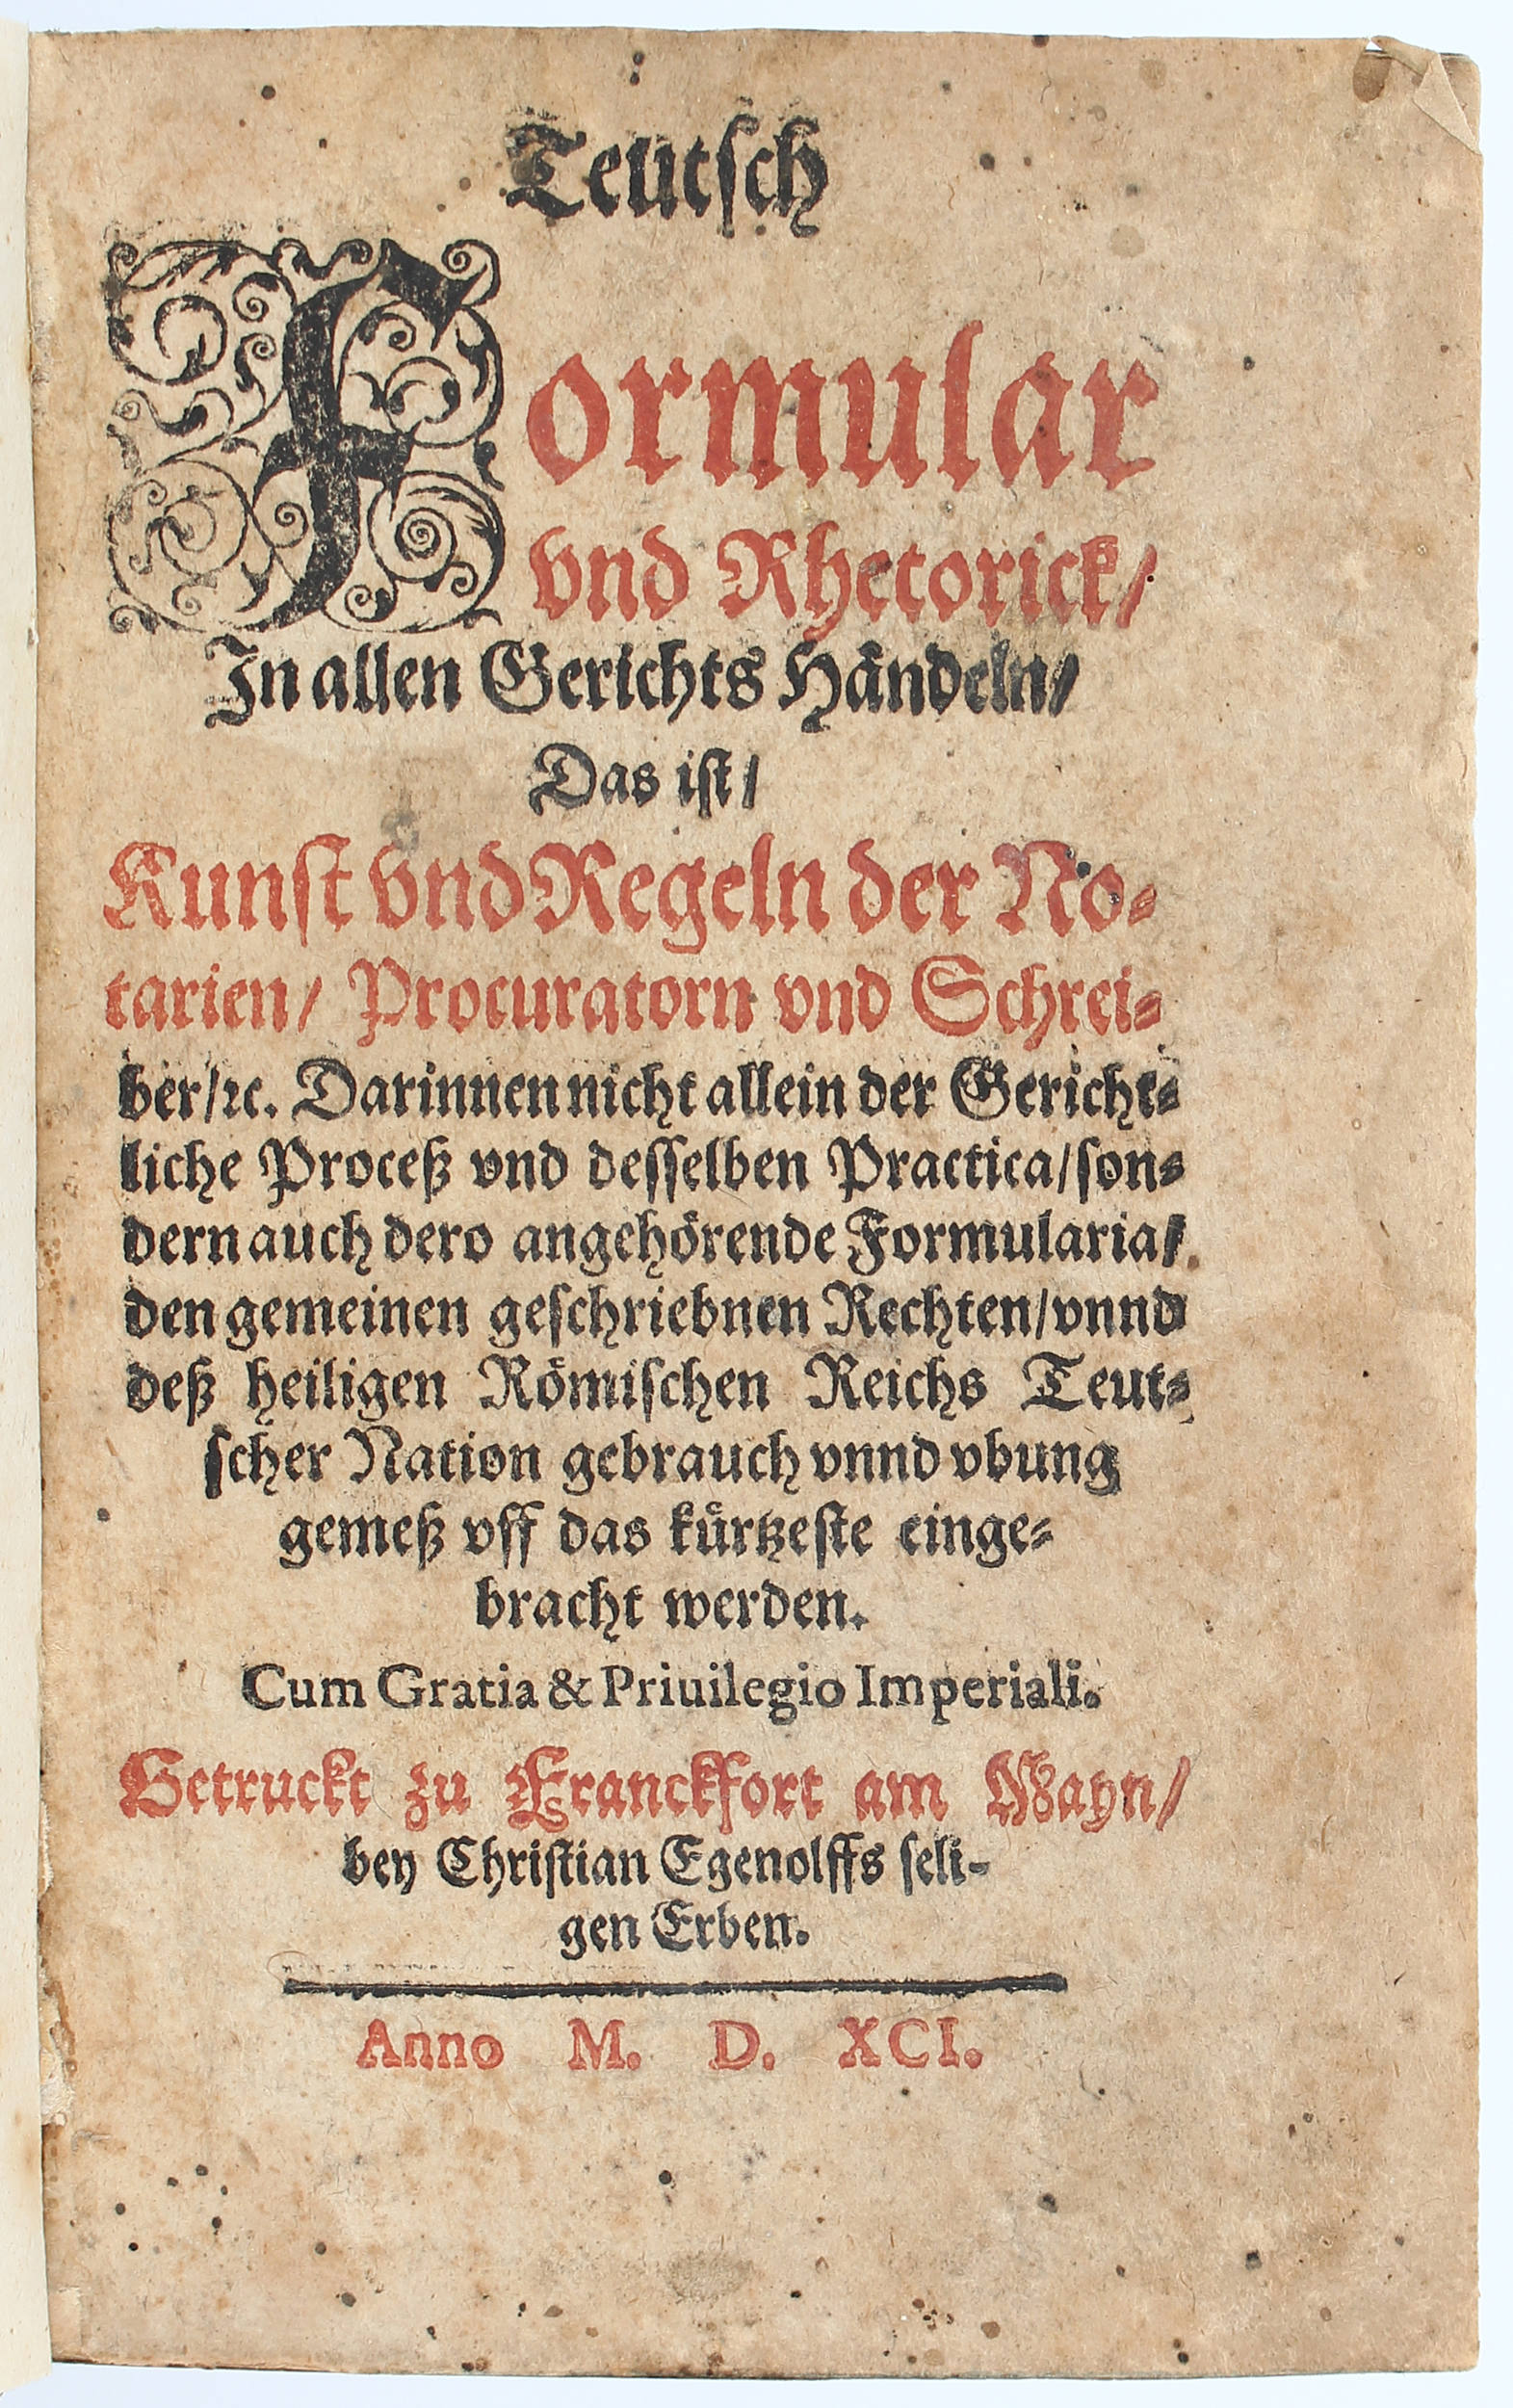 Teutsch
Formular
vnd Rhetorick/
In allen Gerichts Håndeln/
Das ist/
Kunst vnd Regeln der No⸗
tarien/ Procuratorn vnd Schrei⸗
ber/ꝛc. Darinnen nicht allein der Gericht⸗
liche Proceß vnd desselben Practica/son⸗
dern auch dero angehörende Formularia/
den gemeinen geschriebnen Rechten/vnnd
deß heiligen Römischen Reichs Teut⸗
scher Nation gebrauch vnnd vbung
gemeß vff das kürtzeste einge⸗
bracht werden.
Cum Gratia & Priuilegio Imperiali.
Getruckt zu Franckfort am Mayn/
bey Christian Egenolffs seli-
gen Erben.
Anno M. D. XCI.